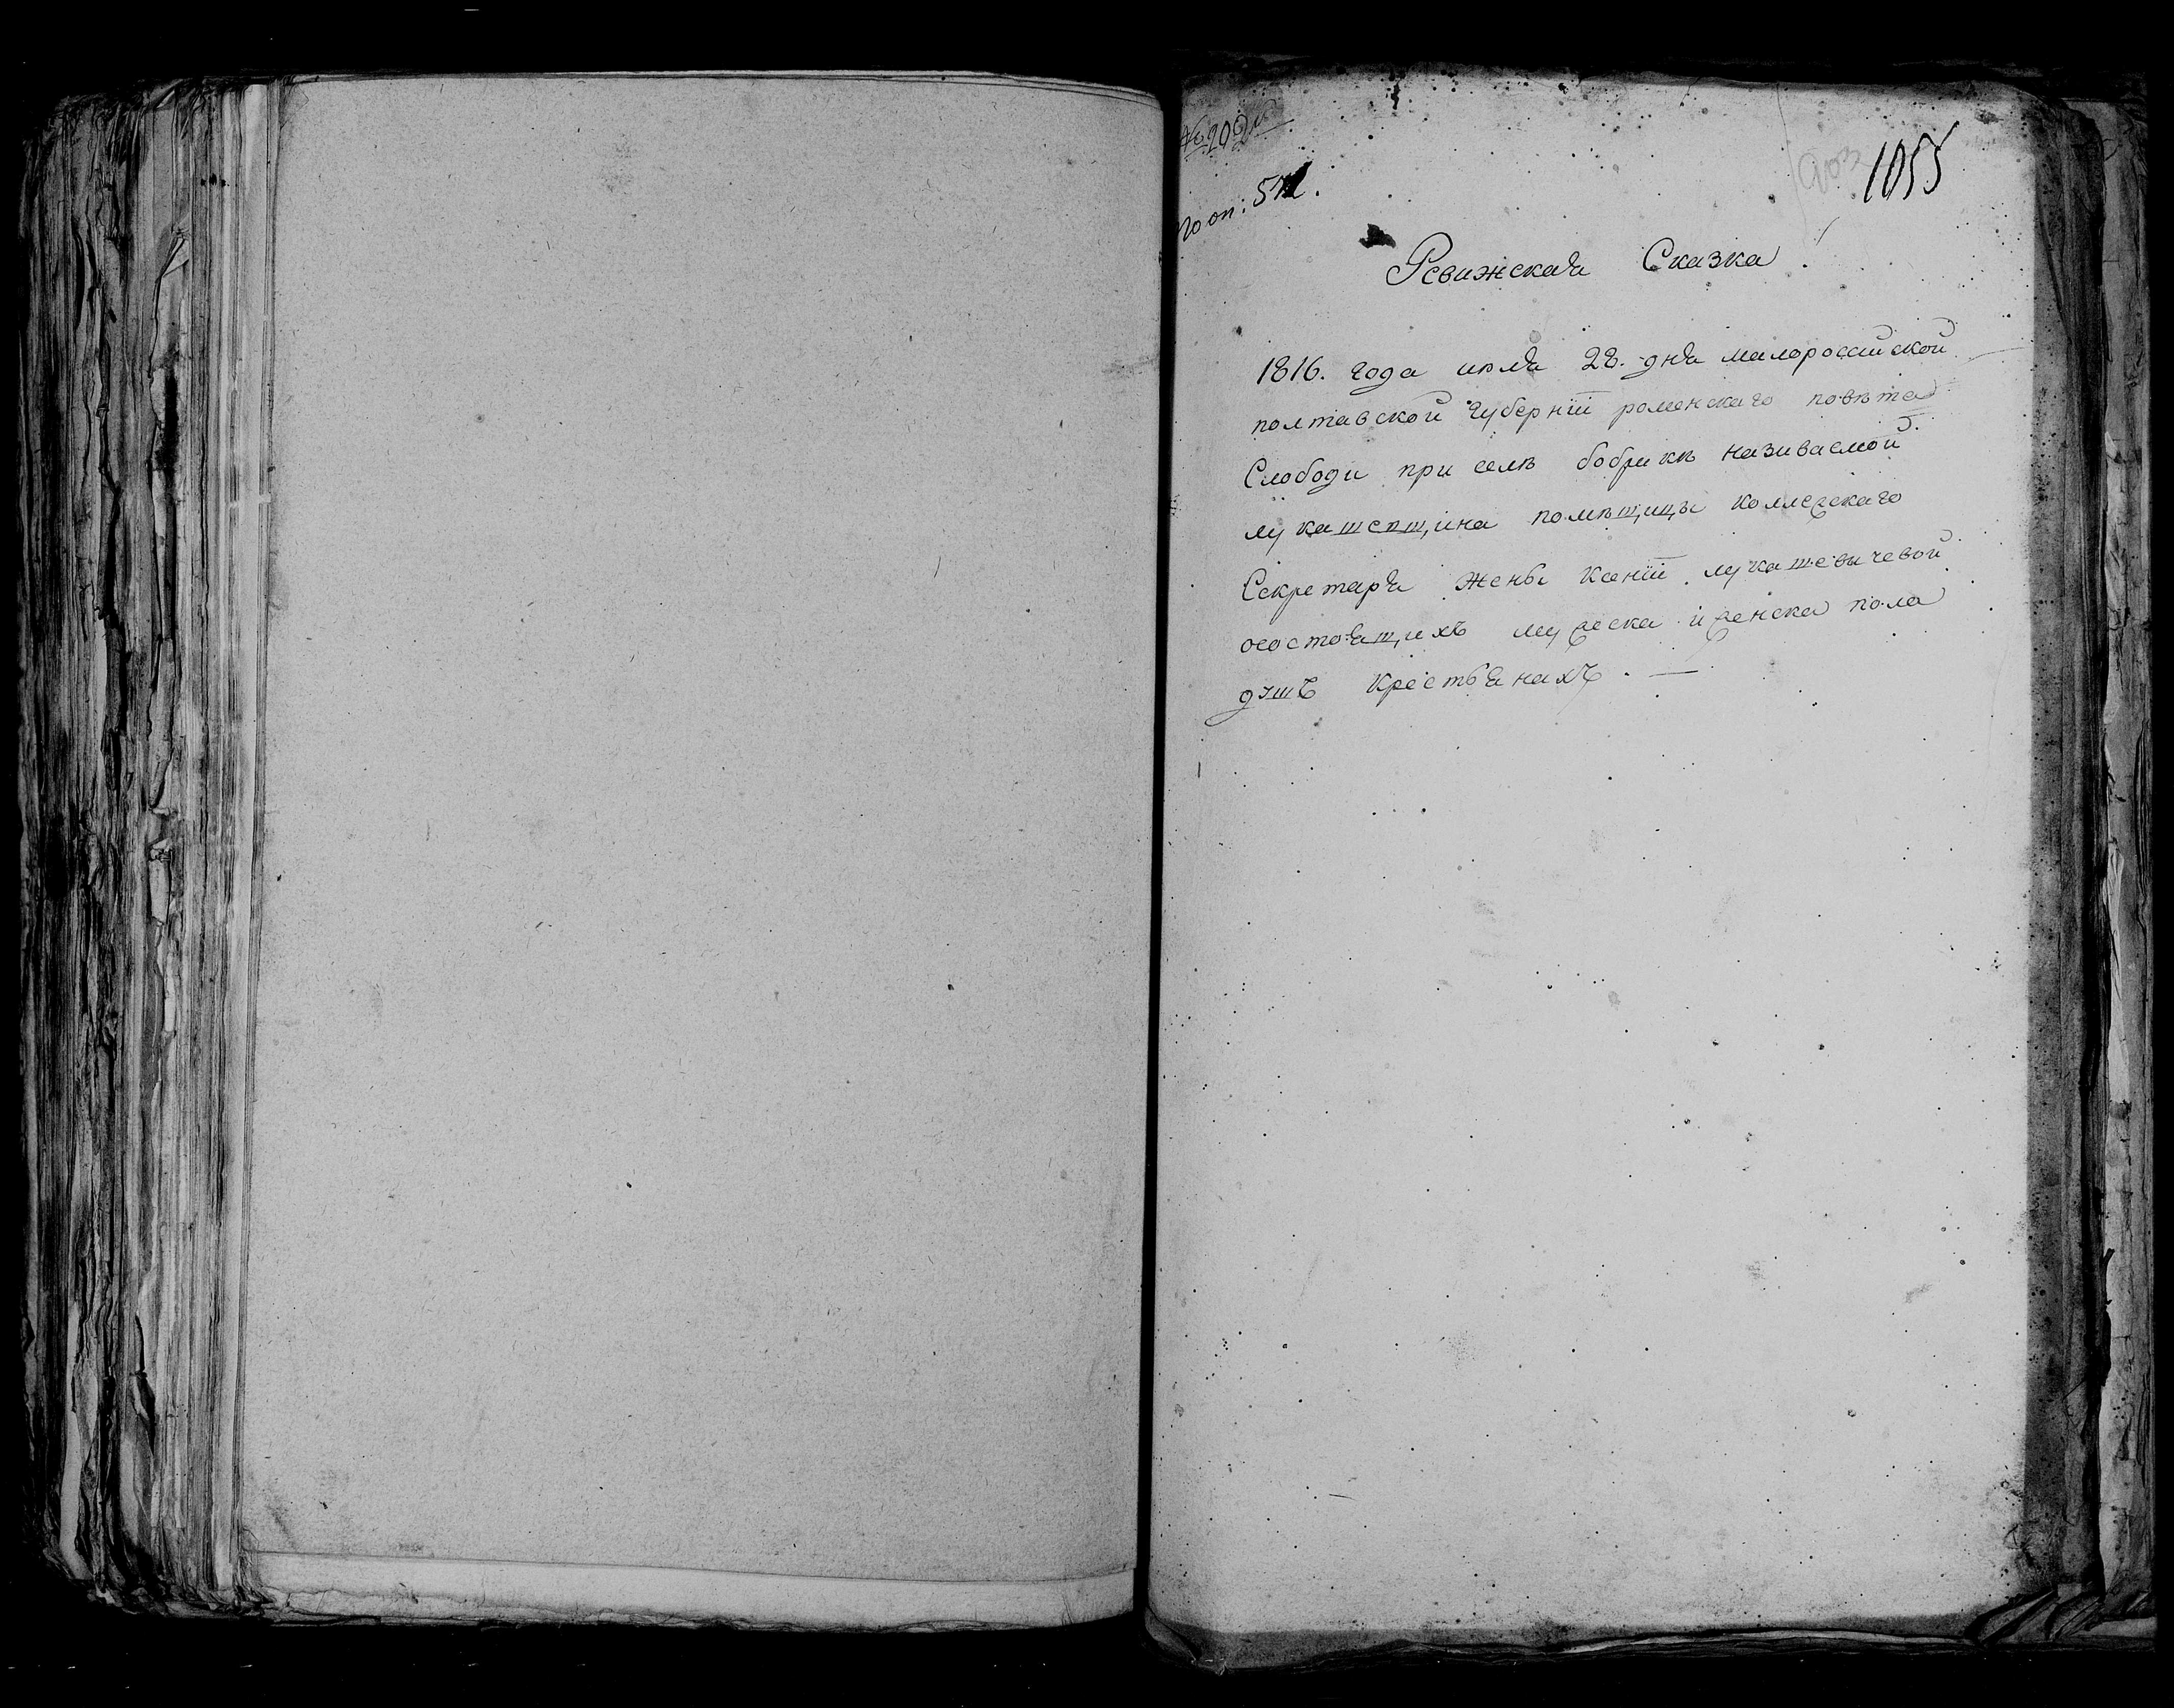 1055
по оп: 571.
Ревижская Сказка
1816. года июля 28. дня малороссийской
полтавской губернїи роменского повѣта
Слободи при селѣ бобрикѣ називаемой
лукашевщина помѣщицы коллежскаго
Секретаря жены Ксенїи лукашевичевой
осостоящихъ мужеска иженска пола
душъ крестьянахъ. —